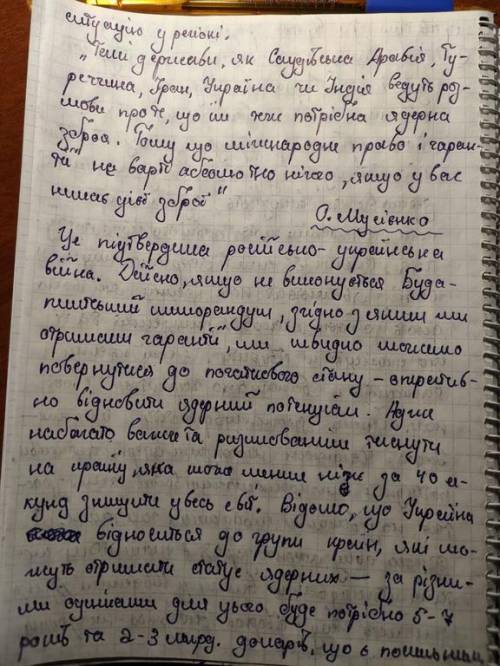 ситуацію у регіоні.
„Такі держави, як Саудівська Аравія, Ту-
реччина, Іран, Україна чи Індія ведуть роз-
мови про те, що їм же потрібна ядерна
зброя. Тому що міжнародне право і гаран-
тії не варті абсолютно нічого, якщо у вас
немає цієї зброї"
О. Мусієнко
Це підтвердила російсько-українська
війна. Дійсно, якщо не виконується Буда-
пештський меморандум, згідно з яким ми
отримали гарантії, ми швидко можемо
повернутися до початкового стану – оператив-
но відновити ядерний потенціал. Адже
набагато важче та ризикованіше тиснути
на країну, яка може менше ніж за 40 се-
кунд знищити увесь світ. Відомо, що Україна
відноситься до групи країн, які мо-
жуть отримати статус ядерних — за різни-
ми оцінками для цього буде потрібно 5-7
років та 2-3 млрд. доларів, що є